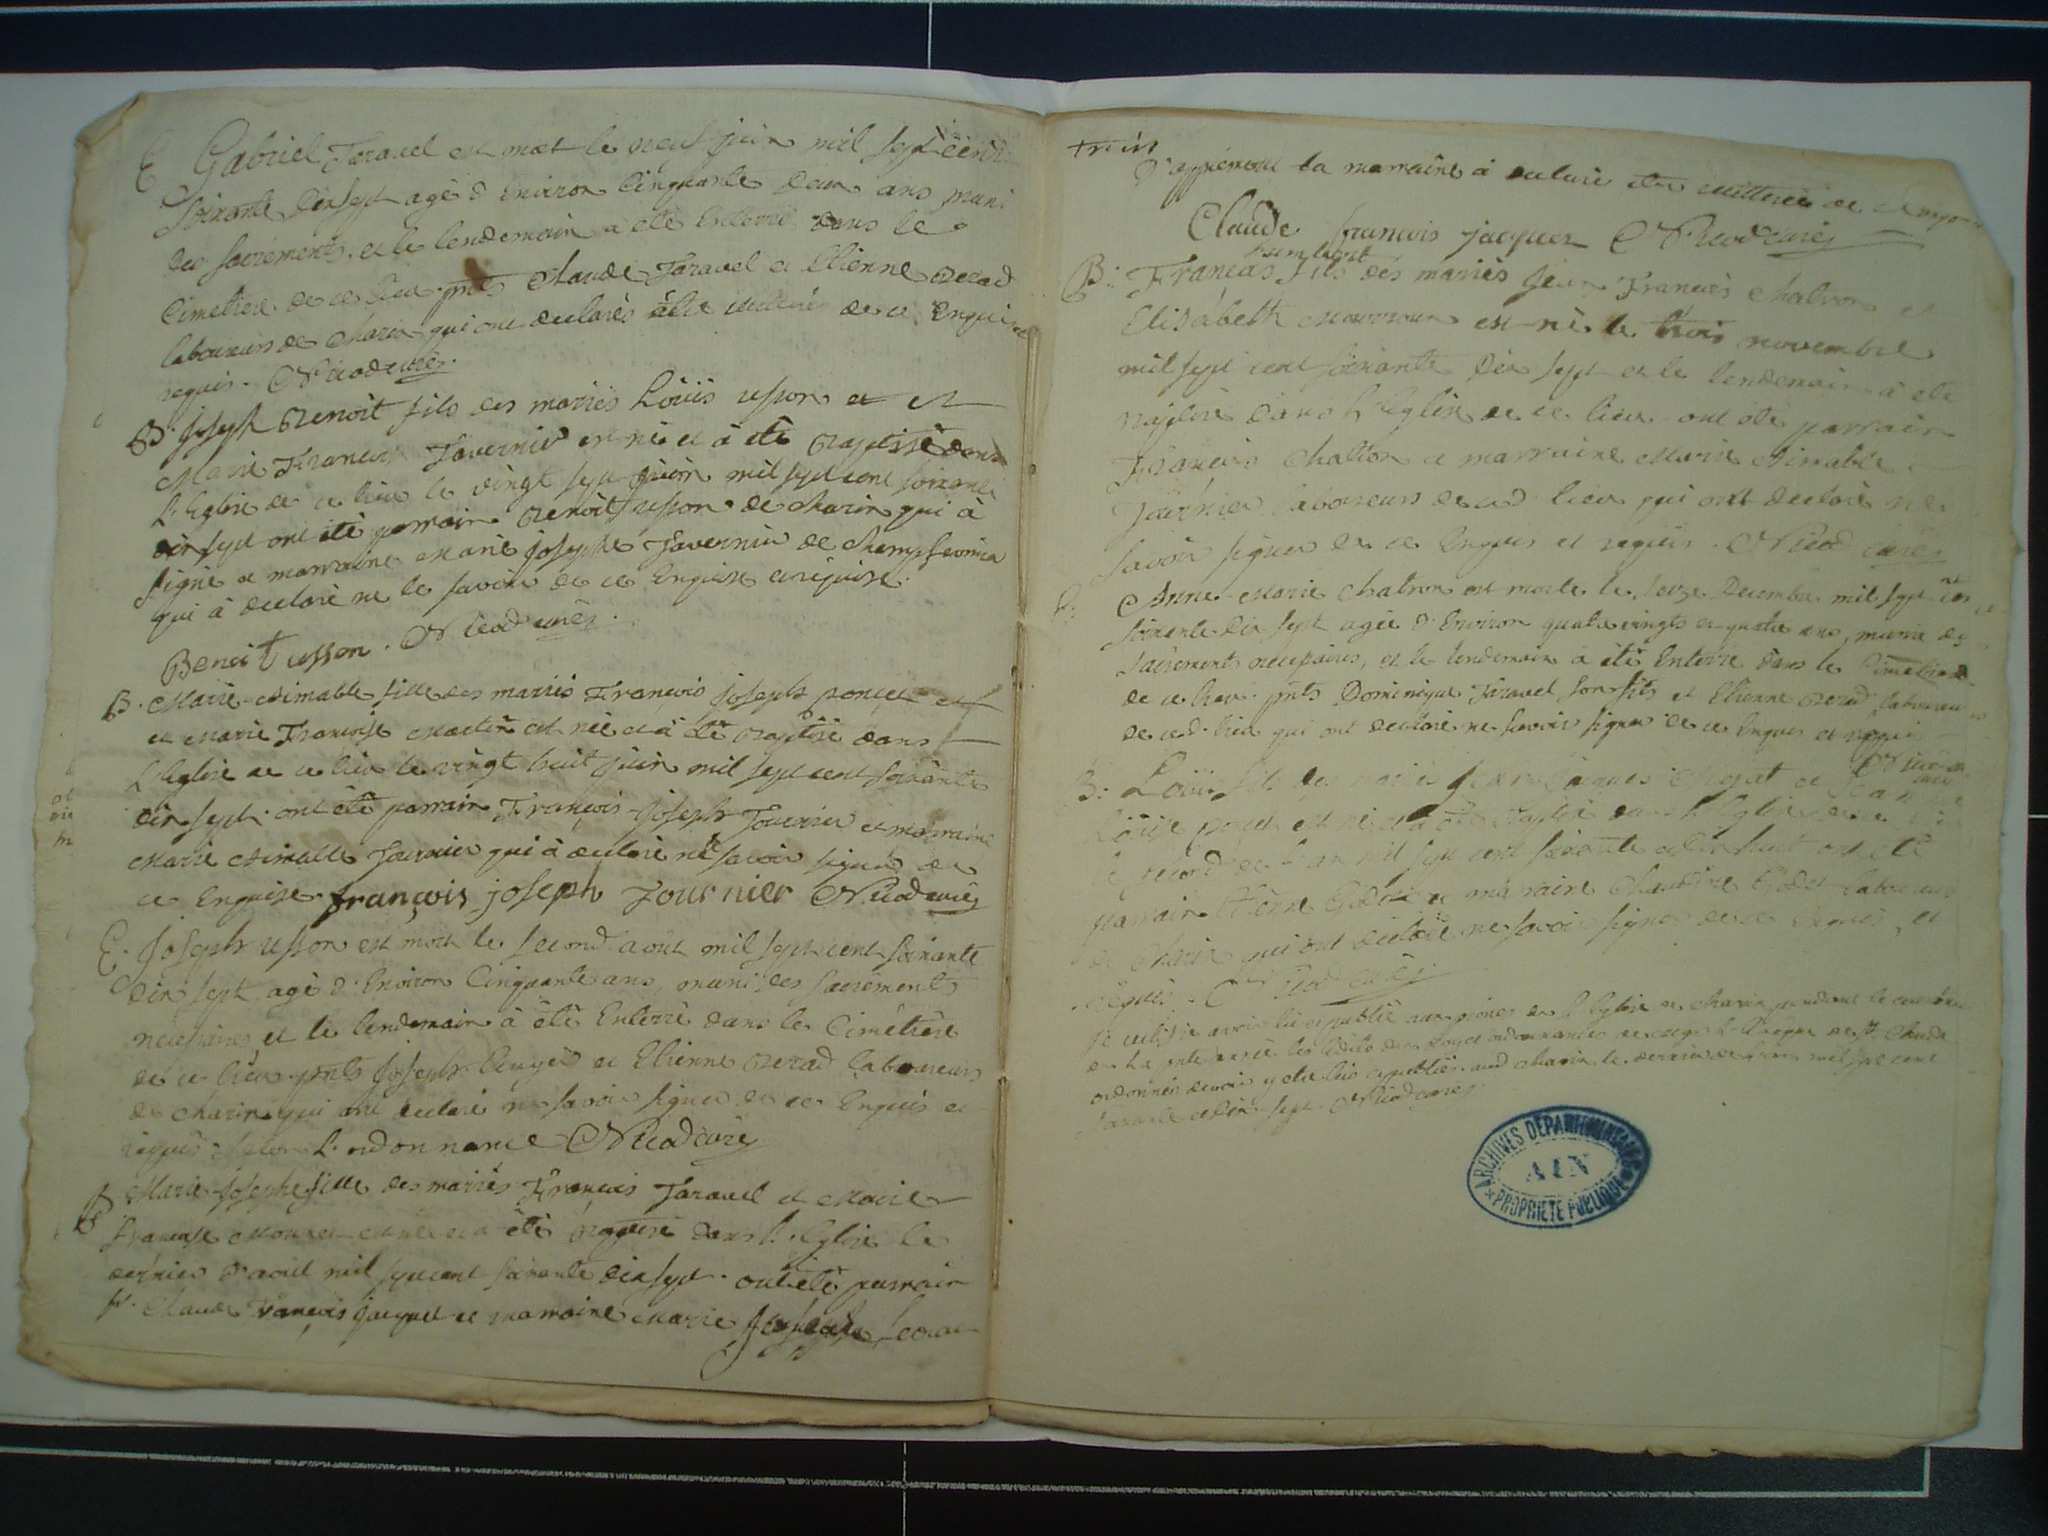 E Gabriel Taravel est mort le neuf juin mil sept cent
soixante dix sept agé d'environ cinquante deux ans muni
des sacrements, et le lendemain a été enterré dans le
cimetiere de ce lieu pnts Claude Taravel et Etienne
laboureurs de Charix qui ont declarés être illiterés de ce enquis et
requis. Nicod curé
B. Joseph Benoit fils des mariés Loüis usson et
Marie Francoise Tavernier est né et à eté baptisé dans
l'Eglise de ce lieu le vingt sept juin mil sept cent soixante
dix sept ont été parrain Benoit usson de Charix qui à
signé et marraine Marie Josephe Tavernier de
qui à declaré ne le savoir de ce enquise et requise.
Benoit usson. Nicod curé.
B. Marie Aimable fille des mariés François Joseph poncet
et Marie Françoise Martin est née et à été baptisée dans
l'Eglise de ce lieu le vingt huit juin mil sept cent soixante
dix sept. ont été parrain François-Joseph Tournier et marraine
Marie Aimable Tournier qui à declaré ne savoir signer de
ce enquise. françois joseph Tournier Nicod curé
E. Joseph usson est mort le second août mil sept cent soixante
dix sept agé d'environ cinquante ans, muni des sacrements
necessaires et le lendemain à été enterré dans le cimetière
de ce lieu pnts Joseph et Etienne laboureurs
de Charix qui ont declaré ne savoir signer de ce enquis et
requis selon l'ordonnance Nicod curé
B Marie-Josephe fille des mariés François Taravel et Marie
Françoise est née et a été baptisée dans l'Eglise le
dernier d'aout mil sept cent soixante dix sept. ont été parrain
sr. Claude François jacquet et marraine Marie Josephe
d'appremont la marraine à declaré être illiterée de ce
Claude francois jacquet Nicod curé
B: François humbert fils des mariés Jean François Chatron et
Elisabeth est né le trois novembre
mil sept cent soixante dix sept et le lendemain à été
baptisé dans l'Eglise de ce lieu ont été parrain
François Chatron et marraine Marie Aimable
Tournier laboureurs de ced. lieu qui ont declaré ne
savoir signer de ce enquis et requis. Nicod curé
E: Anne-Marie Chatron est morte le Decembre mil sept cent
soixante dix sept agée d'environ quatre vingts et quatre ans, munie des
sacrements necessaires, et le lendemain à été enterrée dans le cimetière
de ce lieu. pnts Dominique Taravel son fils et Etienne laboureurs
de ced. lieu qui ont declaré ne savoir signer de ce enquis et requis
Nicod curé
B: Loüis fils des mariés Jean Jacques et
Loüise poncet est né et à été baptisé dans l'Eglise de ce
le second de l'an mil sept cent soixante et dix huit ont été
parrain et marraine Claudine laboureurs
de Charix qui ont declaré ne savoir signer de ce enquis et
requis. Nicod curé
Je certifie avoir lu et publié aux prônes de l'Eglise de Charix pendant le courant
de la pnte année les Edits du Roy et ordonnances de l'Eveque de St. Claude
ordonnés devoir y etre lus et publiés. aud Charix le dernier de mil sept cent
soixante et dix-sept. Nicod curé
ARCHIVES DEPARTEMENTALES
AIN
PROPRIETE PUBLIQUE